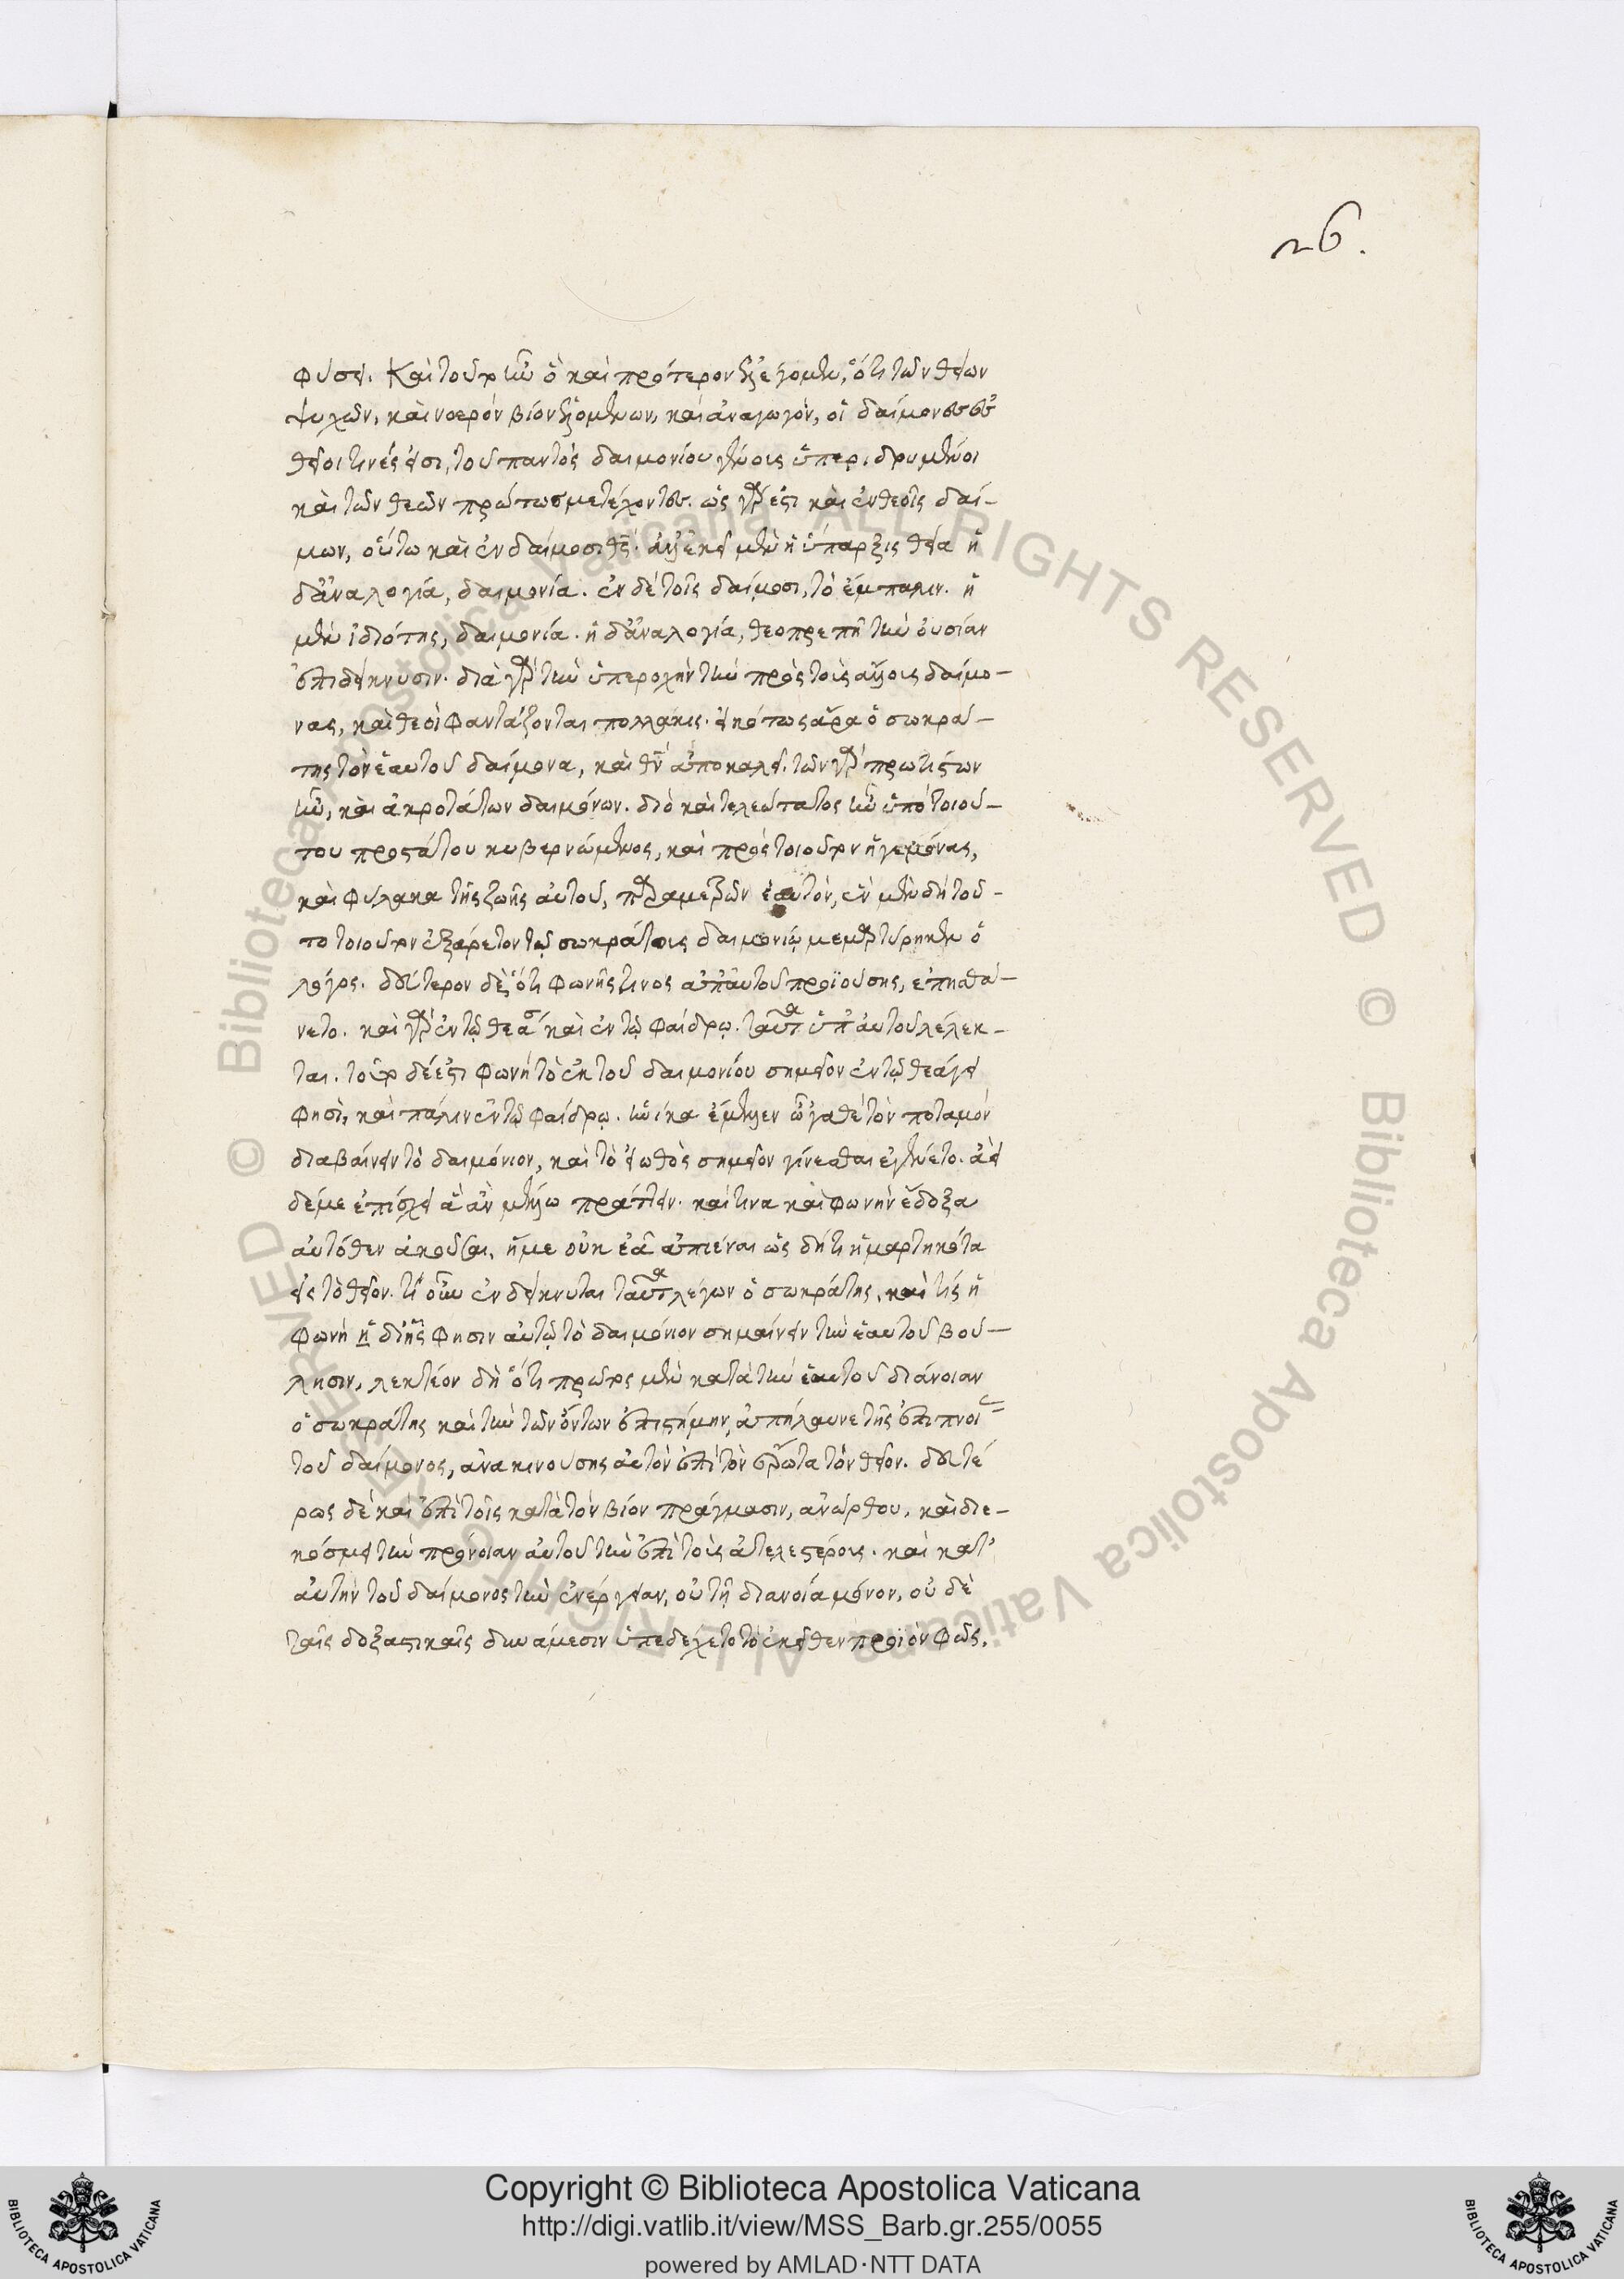 26.
φύσει. Καὶ τοῦτ' ἦν ὃ καὶ πρότερον ἐλέγομεν, ὅτι τῶν θείων
ψυχῶν, καὶ νοερὸν βίον ἑλομένων, καὶ ἀναγωγὸν, οἱ δαίμονες
θεοί τινές εἰσι, τοῦ παντὸς δαιμονίου γένους ὑπεριδρυμένοι
καὶ τῶν θεῶν πρώτως μετέχοντες. ὡς γάρ ἐστι καὶ ἐν θεοῖς δαί-
μων, οὕτω καὶ ἐν δαίμοσι θεός. ἀλλ' ἐκεῖ μὲν ἡ ὕπαρξις θεία ἡ
δ' ἀναλογία, δαιμονία. ἐν δὲ τοῖς δαίμοσι, τὸ ἔμπαλιν. ἡ
μὲν ἰδιότης, δαιμονία. ἡ δ' ἀναλογία, θεοπρεπῆ τὴν οὐσίαν
ἐπιδείκνυσιν. διὰ γὰρ τὴν ὑπεροχὴν τὴν πρὸς τοὺς ἄλλους δαίμο-
νας, καὶ θεοὶ φαντάζονται πολλάκις. εἰκότως ἄρα ὁ σωκρά-
της τὸν ἑαυτοῦ δαίμονα, καὶ θεὸν ἀποκαλεῖ. τῶν γὰρ πρωτίστων
ἦν, καὶ ἀκροτάτων δαιμόνων. διὸ καὶ τελεώτατος ἦν ὑπὸ τοιού-
του προστάτου κυβερνώμενος, καὶ πρὸς τοιοῦτον ἡγεμόνα,
καὶ φύλακα τῆς ζωῆς αὐτοῦ, παραμείβων ἑαυτόν, ἓν μὲν δὴ τοῦ-
το τοιοῦτον ἐξαίρετον τῷ σωκράτους δαιμονίῳ μεμαρτύρηκεν ὁ
λόγος. δεύτερον δὲ ὅτι φωνῆς τινος ἀπ' αὐτοῦ προϊούσης, ἐπῃσθά-
νετο. καὶ γὰρ ἐν τῷ θεα καὶ ἐν τῷ φαίδρῳ. ταῦτα ὑπ' αὐτοῦ λέλεκ-
ται. τοῦτο δέ ἐστι φωνὴ τὸ ἐκ τοῦ δαιμονίου σημεῖον ἐν τῷ θεάγει
φησὶ, καὶ πάλιν ἐν τῷ φαίδρῳ. ἡνίκα ἔμελλεν ὠγαθὲ τὸν ποταμὸν
διαβαίνειν τὸ δαιμόνιον, καὶ τὸ εἰωθὸς σημεῖον γίνεσθαι ἐγένετο. ἀεὶ
δέ με ἐπίσχει ἃ ἂν μέλλω πράττειν. καί τινα καὶ φωνὴν ἔδοξα
αὐτόθεν ἀκοῦσαι, ἥ με οὐκ ἐᾷ ἀπιέναι ὡς δή τι ἡμαρτηκότα
εἰς τὸ θεῖον. τί οὖν ἐνδείκνυται ταῦτα λέγων ὁ σωκράτης, καὶ τίς ἡ
φωνὴ ἢ δι' ἧς φησιν αὐτῷ τὸ δαιμόνιον σημαίνειν τὴν ἑαυτοῦ βού-
λησιν, λεκτέον δὴ ὅτι πρῶτος μὲν κατὰ τὴν ἑαυτοῦ διάνοιαν
ὁ σωκράτης καὶ τὴν τῶν ὄντων ἐπιστήμην, ἀπήλαυνε τῆς ἐπιπνοίας
τοῦ δαίμονος, ἀνακινούσης αὐτὸν ἐπὶ τὸν ἔρωτα τὸν θεῖον. δευτέ
ρως δὲ καὶ ἐπὶ τοῖς κατὰ τὸν βίον πράγμασιν, ἀνώρθου, καὶ διε-
κόσμει τὴν πρόνοιαν αὐτοῦ τὴν ἐπὶ τοῖς ἀτελεστέροις. καὶ κατ'
αὐτὴν τοῦ δαίμονος τὴν ἐνέργειαν, οὐ τῇ διανοίᾳ μόνον, οὐδὲ
ταῖς δοξαστικαῖς δυνάμεσιν ὑπεδέχετο τὸ ἐκεῖθεν προϊὸν φῶς.
Copyright © Biblioteca Apostolica Vaticana
http://digi.vatlib.it/view/MSS_Barb.gr.255/0055
powered by AMLAD·NTT DATA
BIBLIOTECA APOSTOLICA VATICANA
BIBLIOTECA APOSTOLICA VATICANA
Biblioteca Apostolica Vaticana ALL RIGHTS RESERVED ©
Biblioteca Apostolica Vaticana ALL RIGHTS RESERVED ©